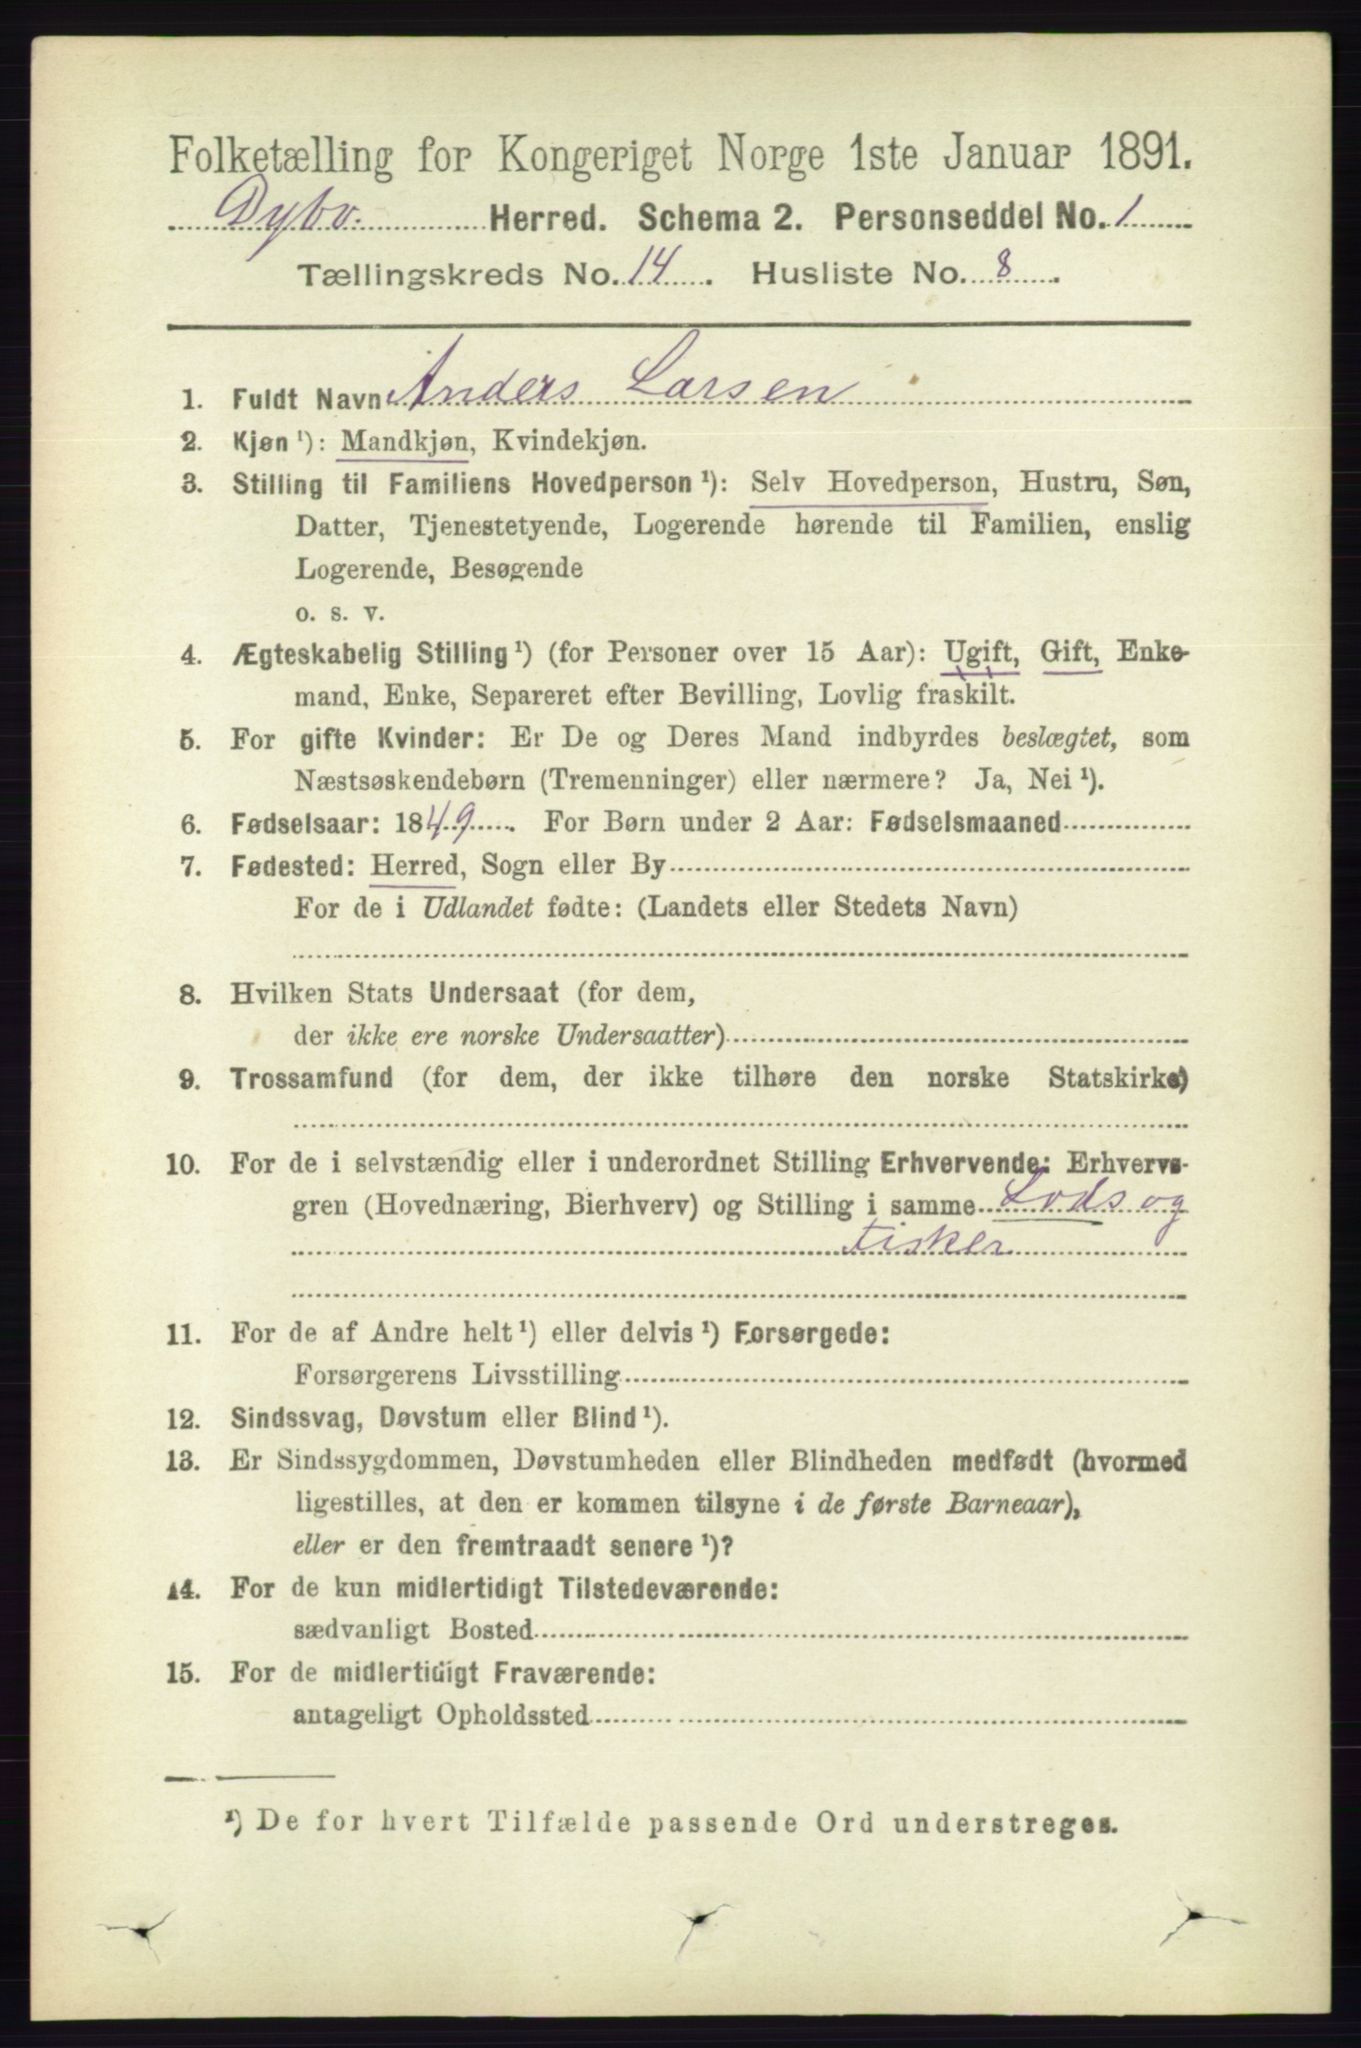 Folketælling for Kongeriget Norge 1ste Januar 1891.
Dybv. Herred. Schema 2. Personseddel No. 1
Tællingskreds No. 14. Husliste No. 8.
1. Fuldt Navn Anders Larsen
2. Kjøn ¹): Mandkjøn, Kvindekjøn.
3. Stilling til Familiens Hovedperson ¹): Selv Hovedperson, Hustru, Søn,
Datter, Tjenestetyende, Logerende hørende til Familien, enslig
Logerende, Besøgende
o. s. v.
4. Ægteskabelig Stilling ¹) (for Personer over 15 Aar): Ugift, Gift, Enke-
mand, Enke, Separeret efter Bevilling, Lovlig fraskilt.
5. For gifte Kvinder: Er De og Deres Mand indbyrdes beslægtet, som
Næstsøskendebørn (Tremenninger) eller nærmere? Ja, Nei ¹).
6. Fødselsaar: 1849. For Børn under 2 Aar: Fødselsmaaned
7. Fødested: Herred, Sogn eller By
For de i Udlandet fødte: (Landets eller Stedets Navn)
8. Hvilken Stats Undersaat (for dem,
der ikke ere norske Undersaatter)
9. Trossamfund (for dem, der ikke tilhøre den norske Statskirke)
10. For de i selvstændig eller i underordnet Stilling Erhvervende: Erhvervs-
gren (Hovednæring, Bierhverv) og Stilling i samme Lods og
Fisker
11. For de af Andre helt ¹) eller delvis ¹) Forsørgede:
Forsørgerens Livsstilling
12. Sindssvag, Døvstum eller Blind ¹).
13. Er Sindssygdommen, Døvstumheden eller Blindheden medfødt (hvormed
ligestilles, at den er kommen tilsyne i de første Barneaar),
eller er den fremtraadt senere ¹)?
14. For de kun midlertidigt Tilstedeværende:
sædvanligt Bosted
15. For de midlertidigt Fraværende:
antageligt Opholdssted
¹) De for hvert Tilfælde passende Ord understreges.